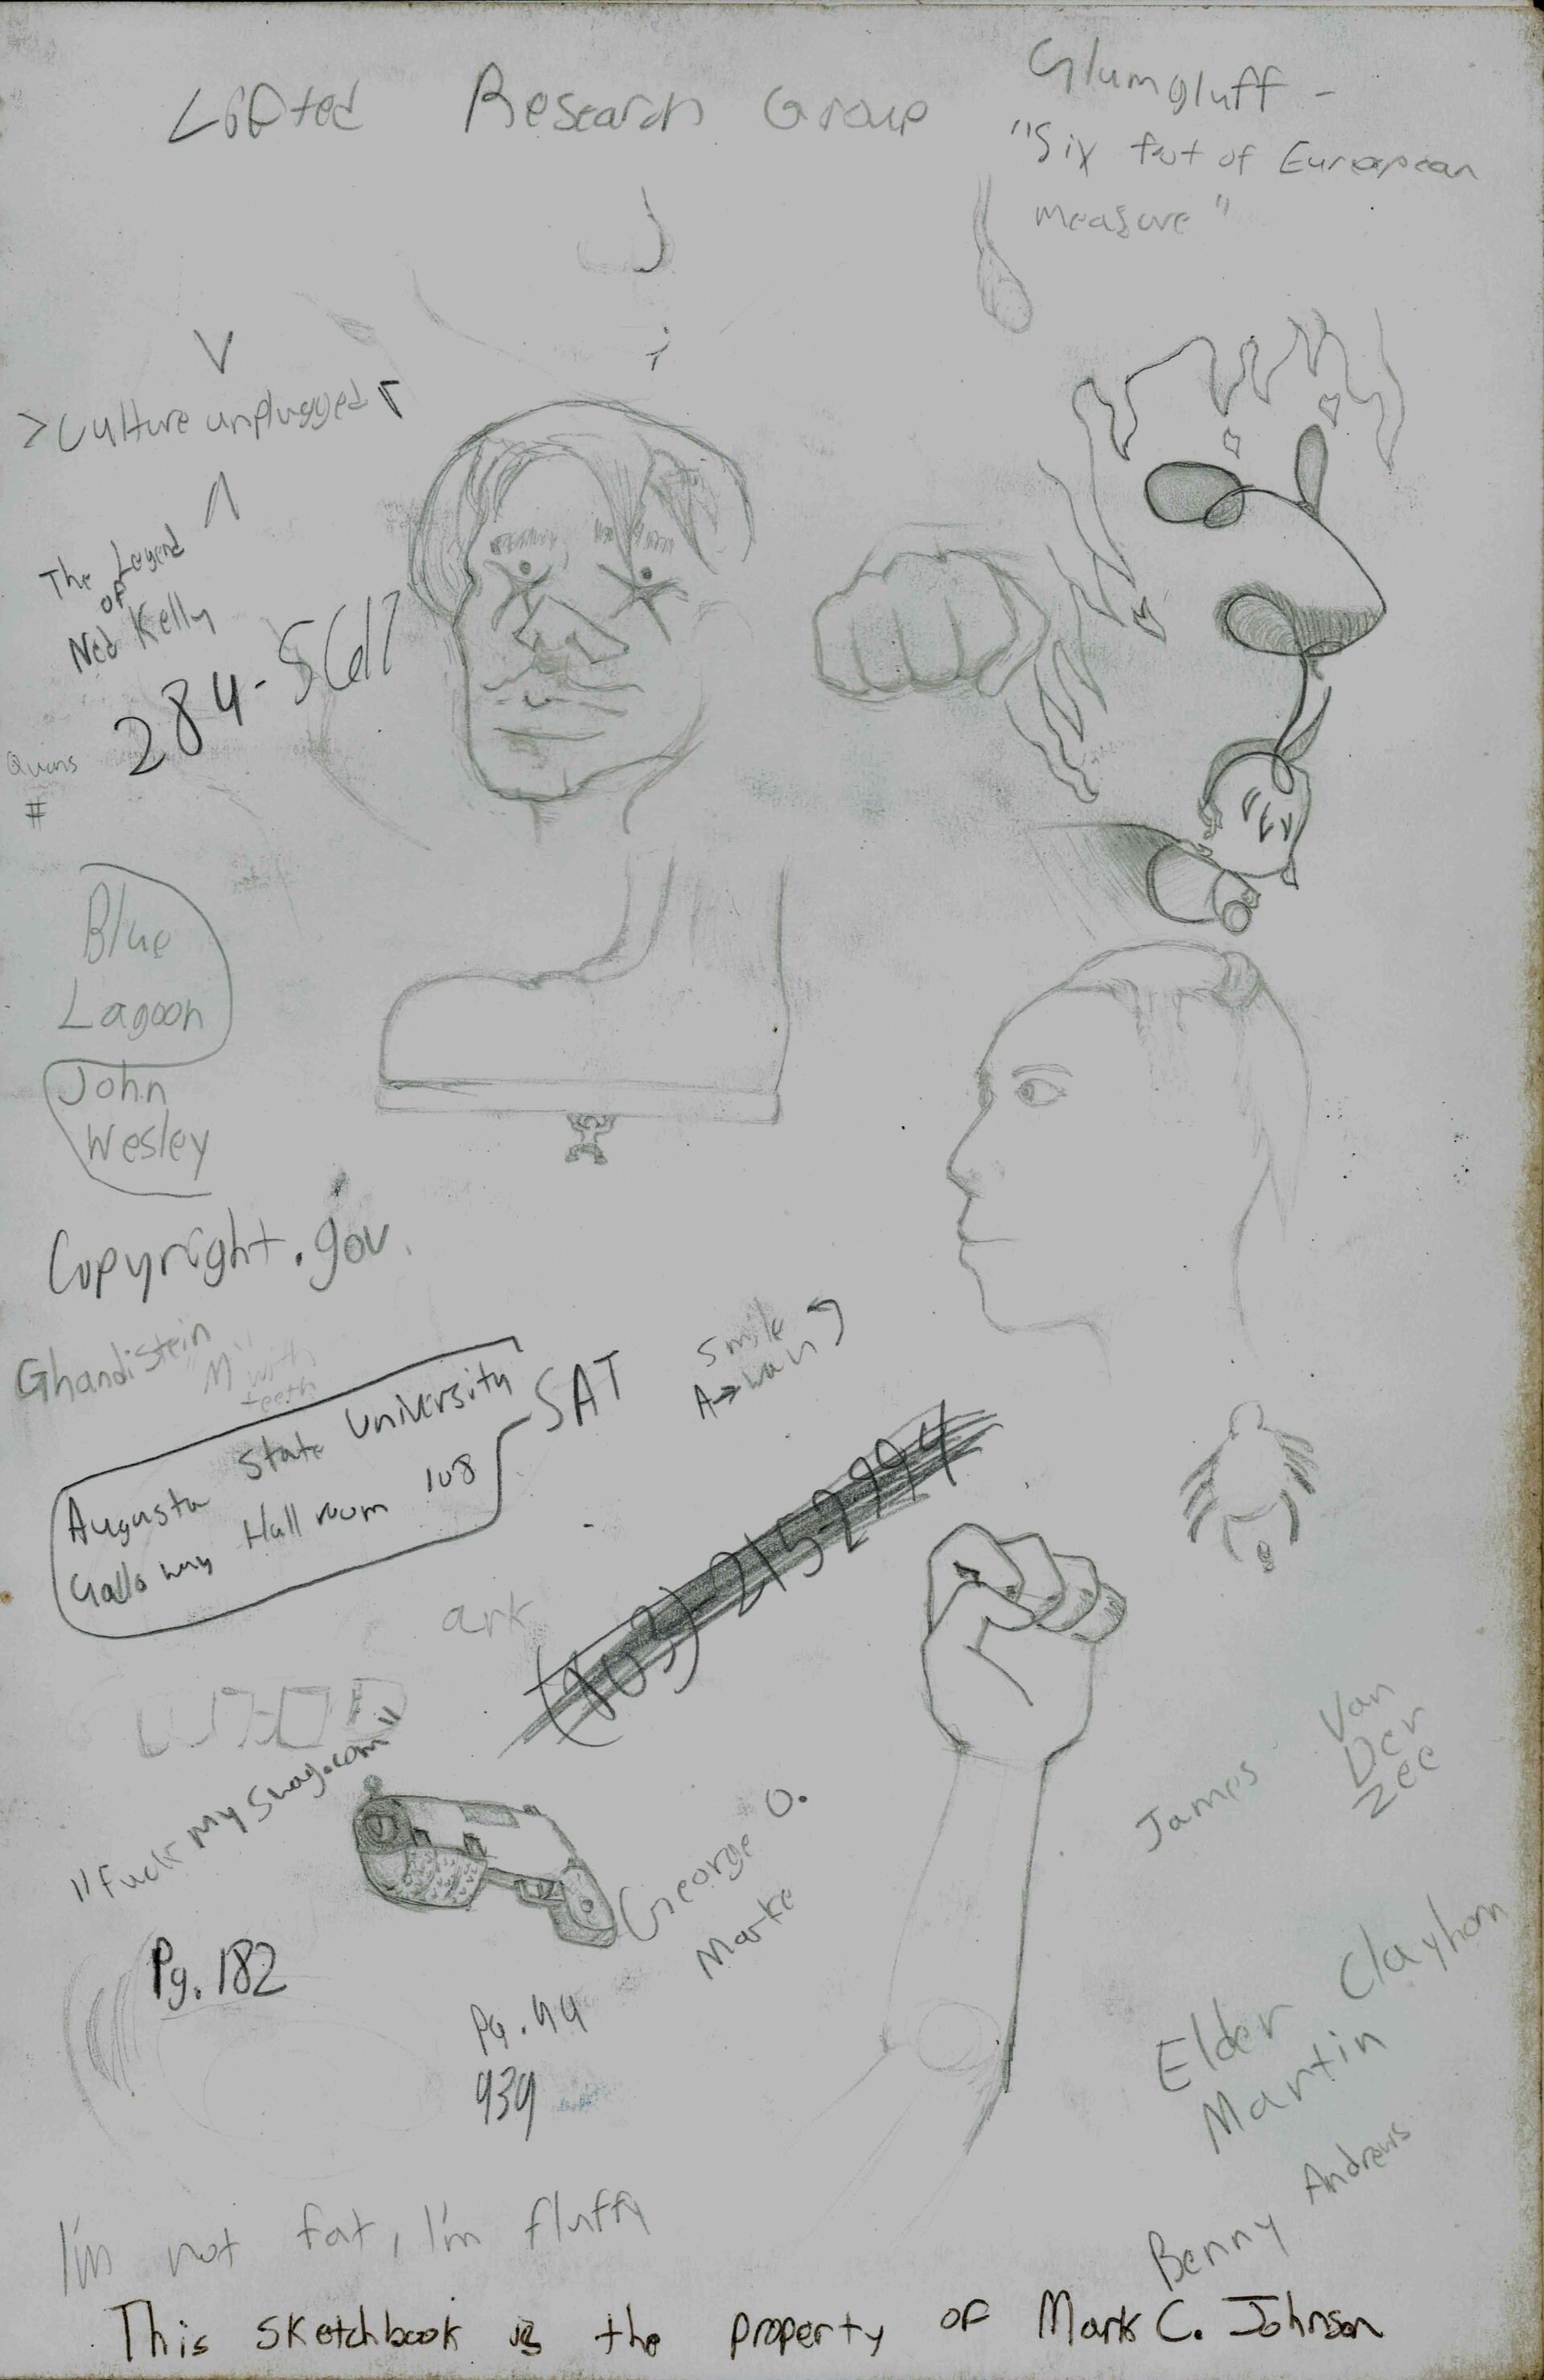 Lifted Research Group
Glumgluff -
"Six fut of European
measure"
>Culture unplugged
The Legend
of
Ned Kelly
284-5617
Quins
#
Blue
Lagoon
John
Wesley
Copyright.gov
Ghandistein
"M" with
teeth
Smile
Again
SAT
Augusta State University
Gallo way Hall room 108
ark
"Fuck My Swag.com"
George O.
Marke
Pg. 182
Pg. 44
939
James Van
Der
Zee
Elder Clayhorn
Martin
Benny Andrews
I'm not fat, I'm fluffy
This sketchbook is the property of Mark C. Johnson